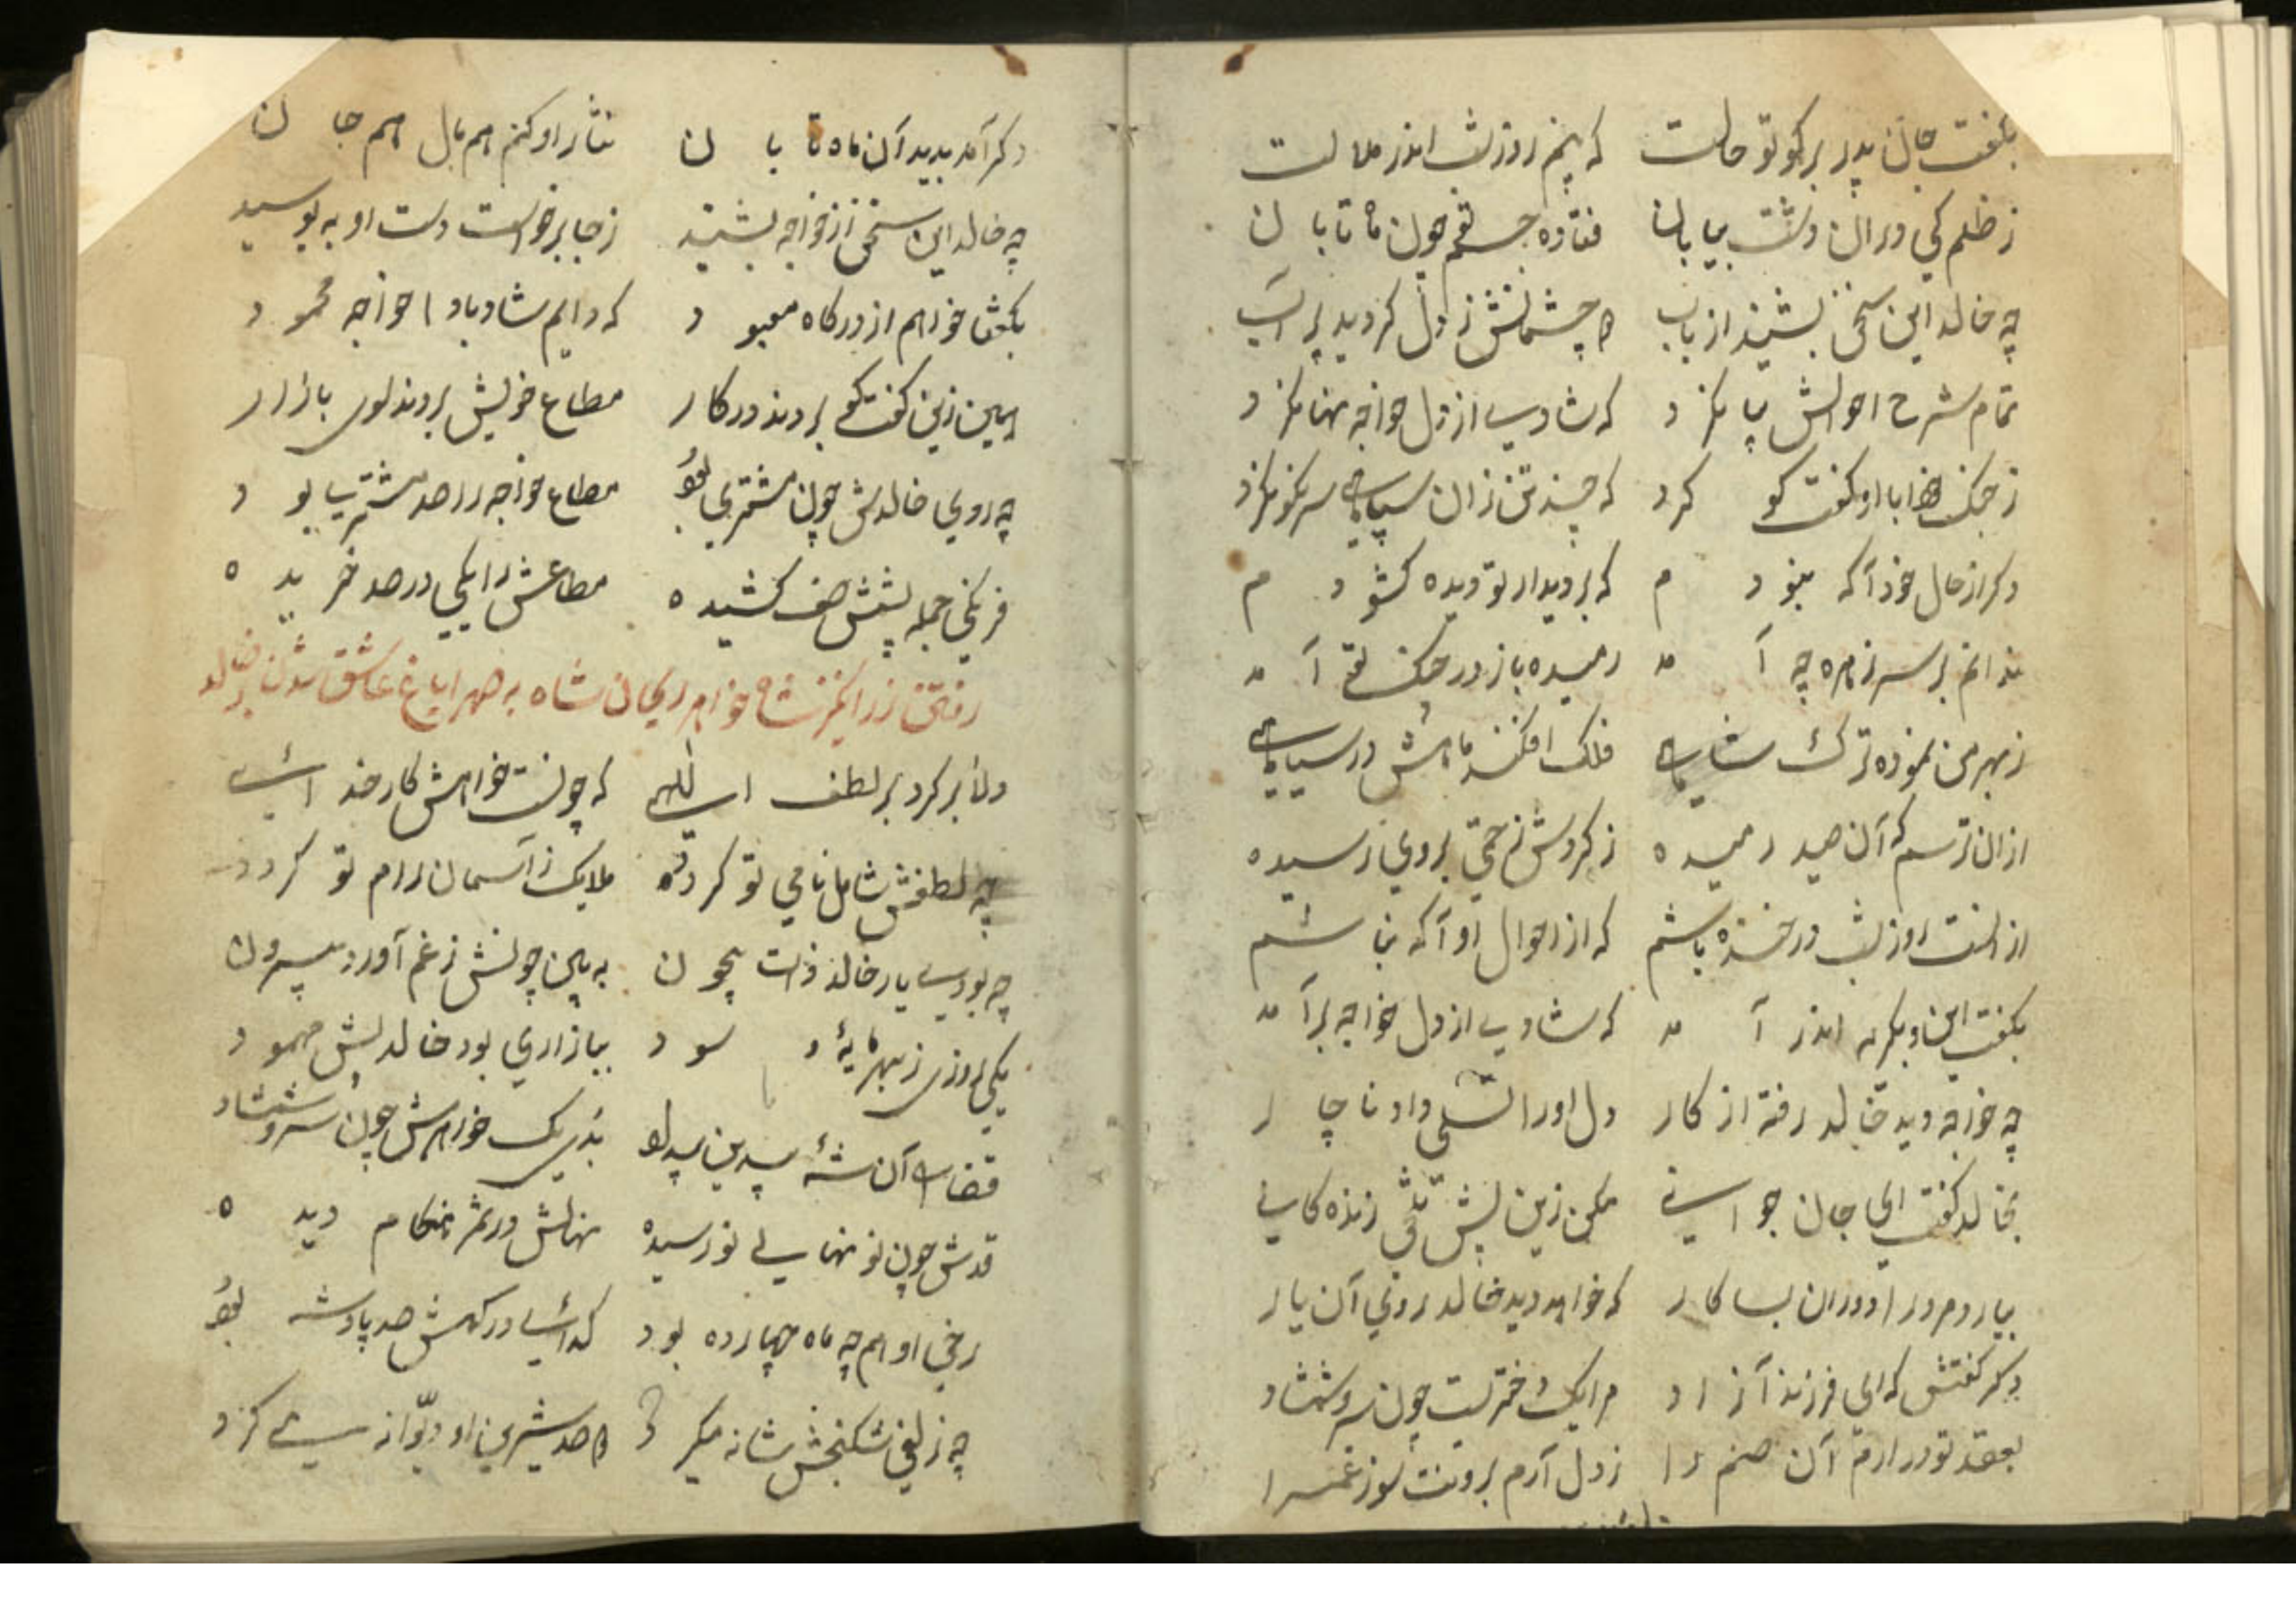 بگفت جان پدر بر کو تو حالت که بینم روز شب اندر ملالت
ز ظلم کی دران دشت بیابان فتاده جسم چون ماه تابان
چه خالد این سخن بشنید از باب دو چشمانش ز دل کردید پر آب
تمام شرح احوالش بیا نکرد که شادی از دل خواجه نها نکرد
ز جنک با او کفت کو کرد که چند تن زان سپاهی سر نکو نکرد
دکر از حال خود آکه نبودم که بر دیدار تو دیده کشودم
ندانم بر سر نامره چه آمد رمیده باز در جنک آمد
ز بهر من نموده ترک شاهی فلک افکند ماهش در سیاهی
ازان ترسم که آن صید رمیده ز کردش زخمی بروی رسیده
از انست روز شب در خنده باشم که از احوال او آکه نباشم
بکفت این و بکریه اندر آمد که شادی از دل خواجه بر آمد
چه خواجه دید خالد رفته از کار دل او را تسلی داد ناچار
بخالد کفت ای جان جوانی مکن زین پیش زنده کانی
بیارد مرورا دوران بسا کار که خواهد دید خالد روی آن یار
دکر کفتش که ای فرزند آزاد مرا یک دختریست چون سرو شمشاد
بعقد تو در ارم آن صنم را ز دل آرم برونت سوز غم را
دکر آمد بدید آن ماه تابان نثار او کنم هم مال هم جان
چه خالد این سخن از خواجه بشنید ز جا برخواست دست او به بوسید
بکفتا خواهم از درکاه معبود که دایم شاد بادا خواجه محمود
همین زین کفت کو بردند در کار مطاع خویش بردند سوی بازار
چه روی خالدش چون مشتری بود مطاع خواجه را صد مشتری بود
فرنکی جمله پیشش صف کشیده مطاعش را یکی در صد خریده
رفتن زر انکیز شاه خواهر ریحان شاه به صهرا باغ عاشق شدن بر خالد
دلا بر کرد بر لطف الهی که چونست خواهش کار خدائی
چه لطفش شامل نامی تو کردد ملایک ز آسمان رام تو کردد
چه بودی یار خالد ذات بیچون به بین چونش ز غم آورد بیرون
یکی روزی ز بهر مایه و سود ببازاری بود خالد پیش مهمود
قضا را آن شه بیدین بدی یک خواهرش چون سرو شمشاد
قدش چون نو نهالی نو رسیده نهالش در ثمر هنکام دیده
رخی او هم چه ماه چهارده بود کدائی در کهش صد پادشه بود
چه زلفی شکنجش شانه میکرد دو صد شیرین او دیوانه میکرد